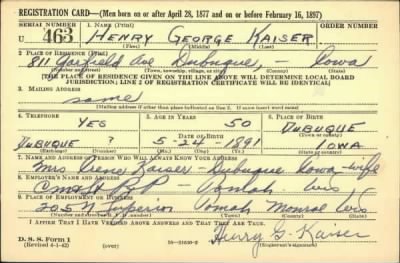 REGISTRATION CARD—(Men born on or after April 28, 1877 and on or before February 16, 1897)
SERIAL NUMBER 1. NAME (Print) ORDER NUMBER
U 463 HENRY GEORGE KAISER
(First) (Middle) (Last)
2. PLACE OF RESIDENCE (Print)
811 Garfield Ave Dubuque, — Iowa
(Number and street) (Town, township, village, or city) (County) (State)
[THE PLACE OF RESIDENCE GIVEN ON THE LINE ABOVE WILL DETERMINE LOCAL BOARD
JURISDICTION; LINE 2 OF REGISTRATION CERTIFICATE WILL BE IDENTICAL]
3. MAILING ADDRESS
same
[Mailing address if other than place indicated on line 2. If same insert word same]
4. TELEPHONE 5. AGE IN YEARS 6. PLACE OF BIRTH
YES 50 DUBUQUE
DATE OF BIRTH (Town or county)
DUBUQUE ? 5-24-1891 IOWA
(Exchange) (Number) (Mo.) (Day) (Yr.) (State or country)
7. NAME AND ADDRESS OF PERSON WHO WILL ALWAYS KNOW YOUR ADDRESS
Mrs Kaiser — Dubuque Iowa — wife
8. EMPLOYER'S NAME AND ADDRESS
Tomah Wis
9. PLACE OF EMPLOYMENT OR BUSINESS
205 N Superior Tomah Monroe Wis
(Number and street or R. F. D. number) (Town) (County) (State)
I AFFIRM THAT I HAVE VERIFIED ABOVE ANSWERS AND THAT THEY ARE TRUE.
D. S. S. Form 1 Henry G. Kaiser
(Revised 4-1-42) (over) 16—21630-2 (Registrant's signature)